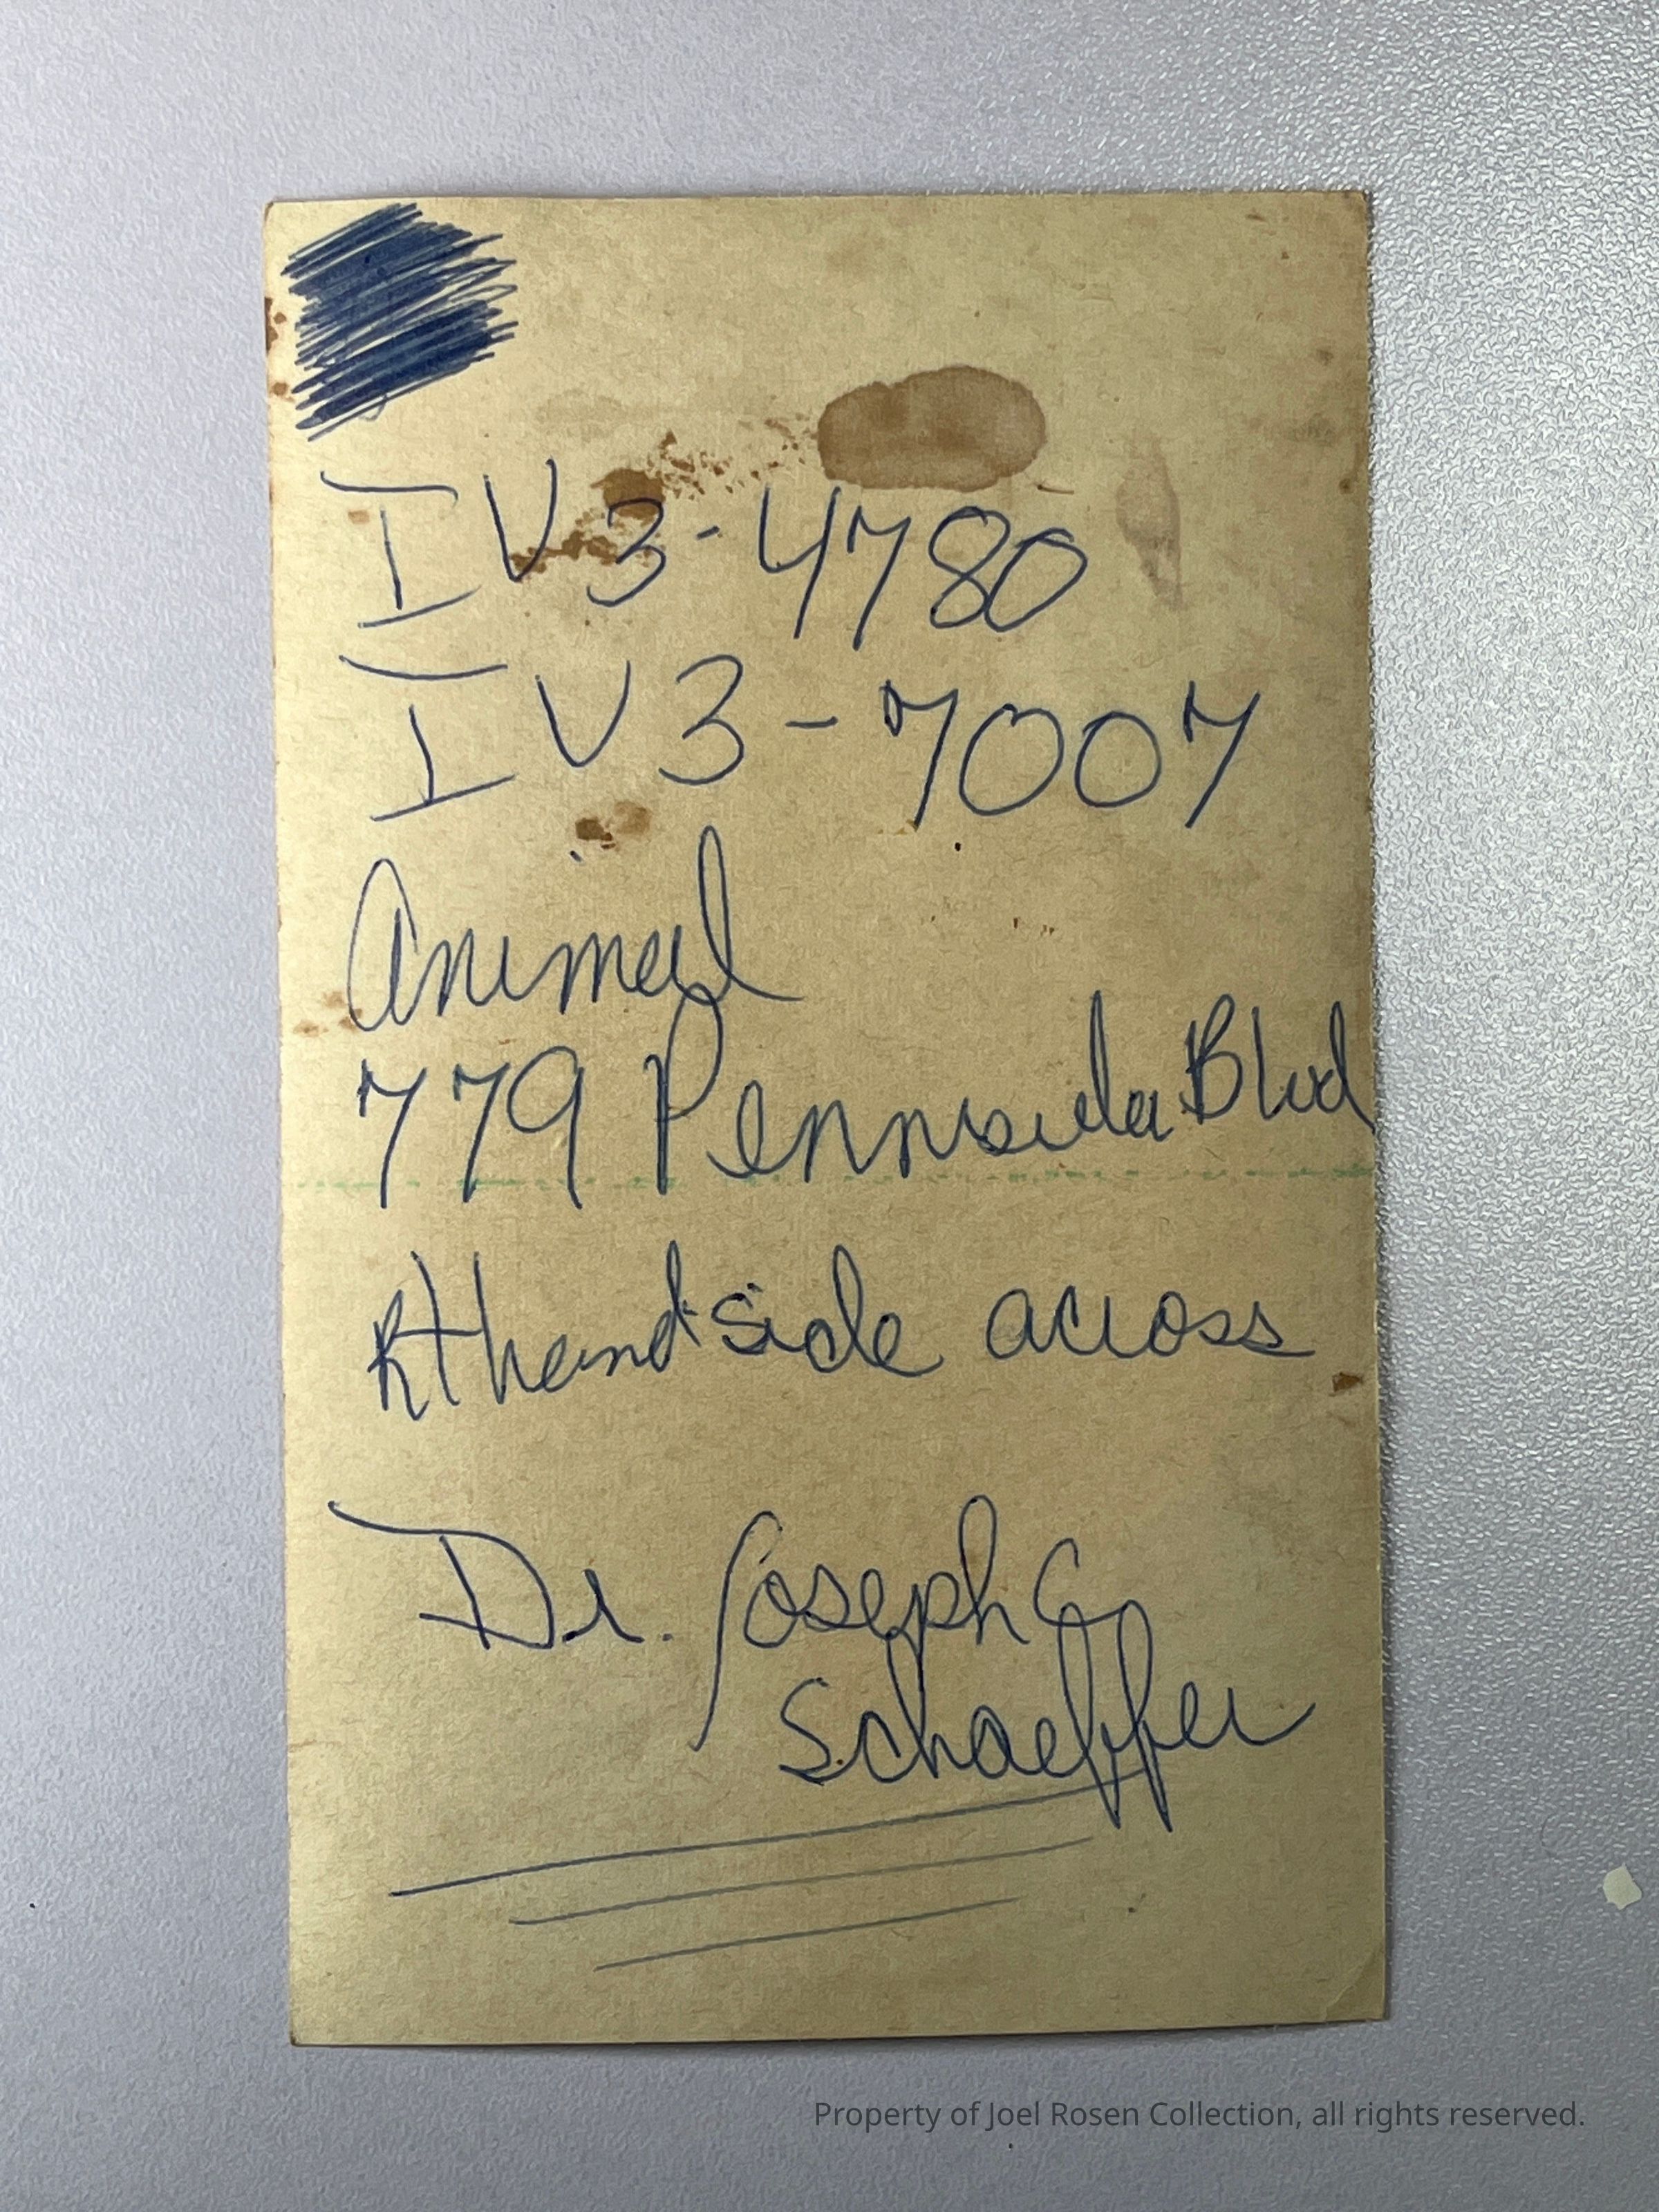 IV3-4780
IV3-7007
Animal
779 Pennisula Blvd
Rt hand side across
Dr. Joseph C
Schaeffer
Property of Joel Rosen Collection, all rights reserved.